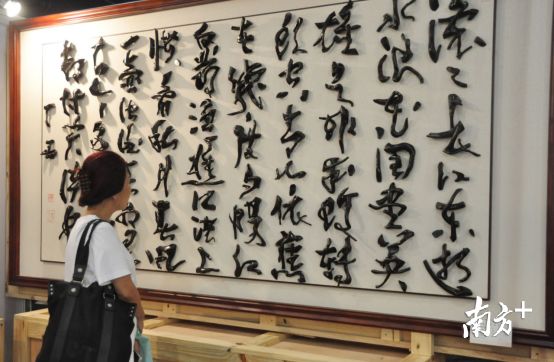 滚々长江东逝
水浪花淘尽英
雄是非成败转
头空青山依舊
在几度夕陽红
白髮渔樵江渚上
惯看秋月春风
一壶浊酒喜
都付笑谈中
丁酉
南方+